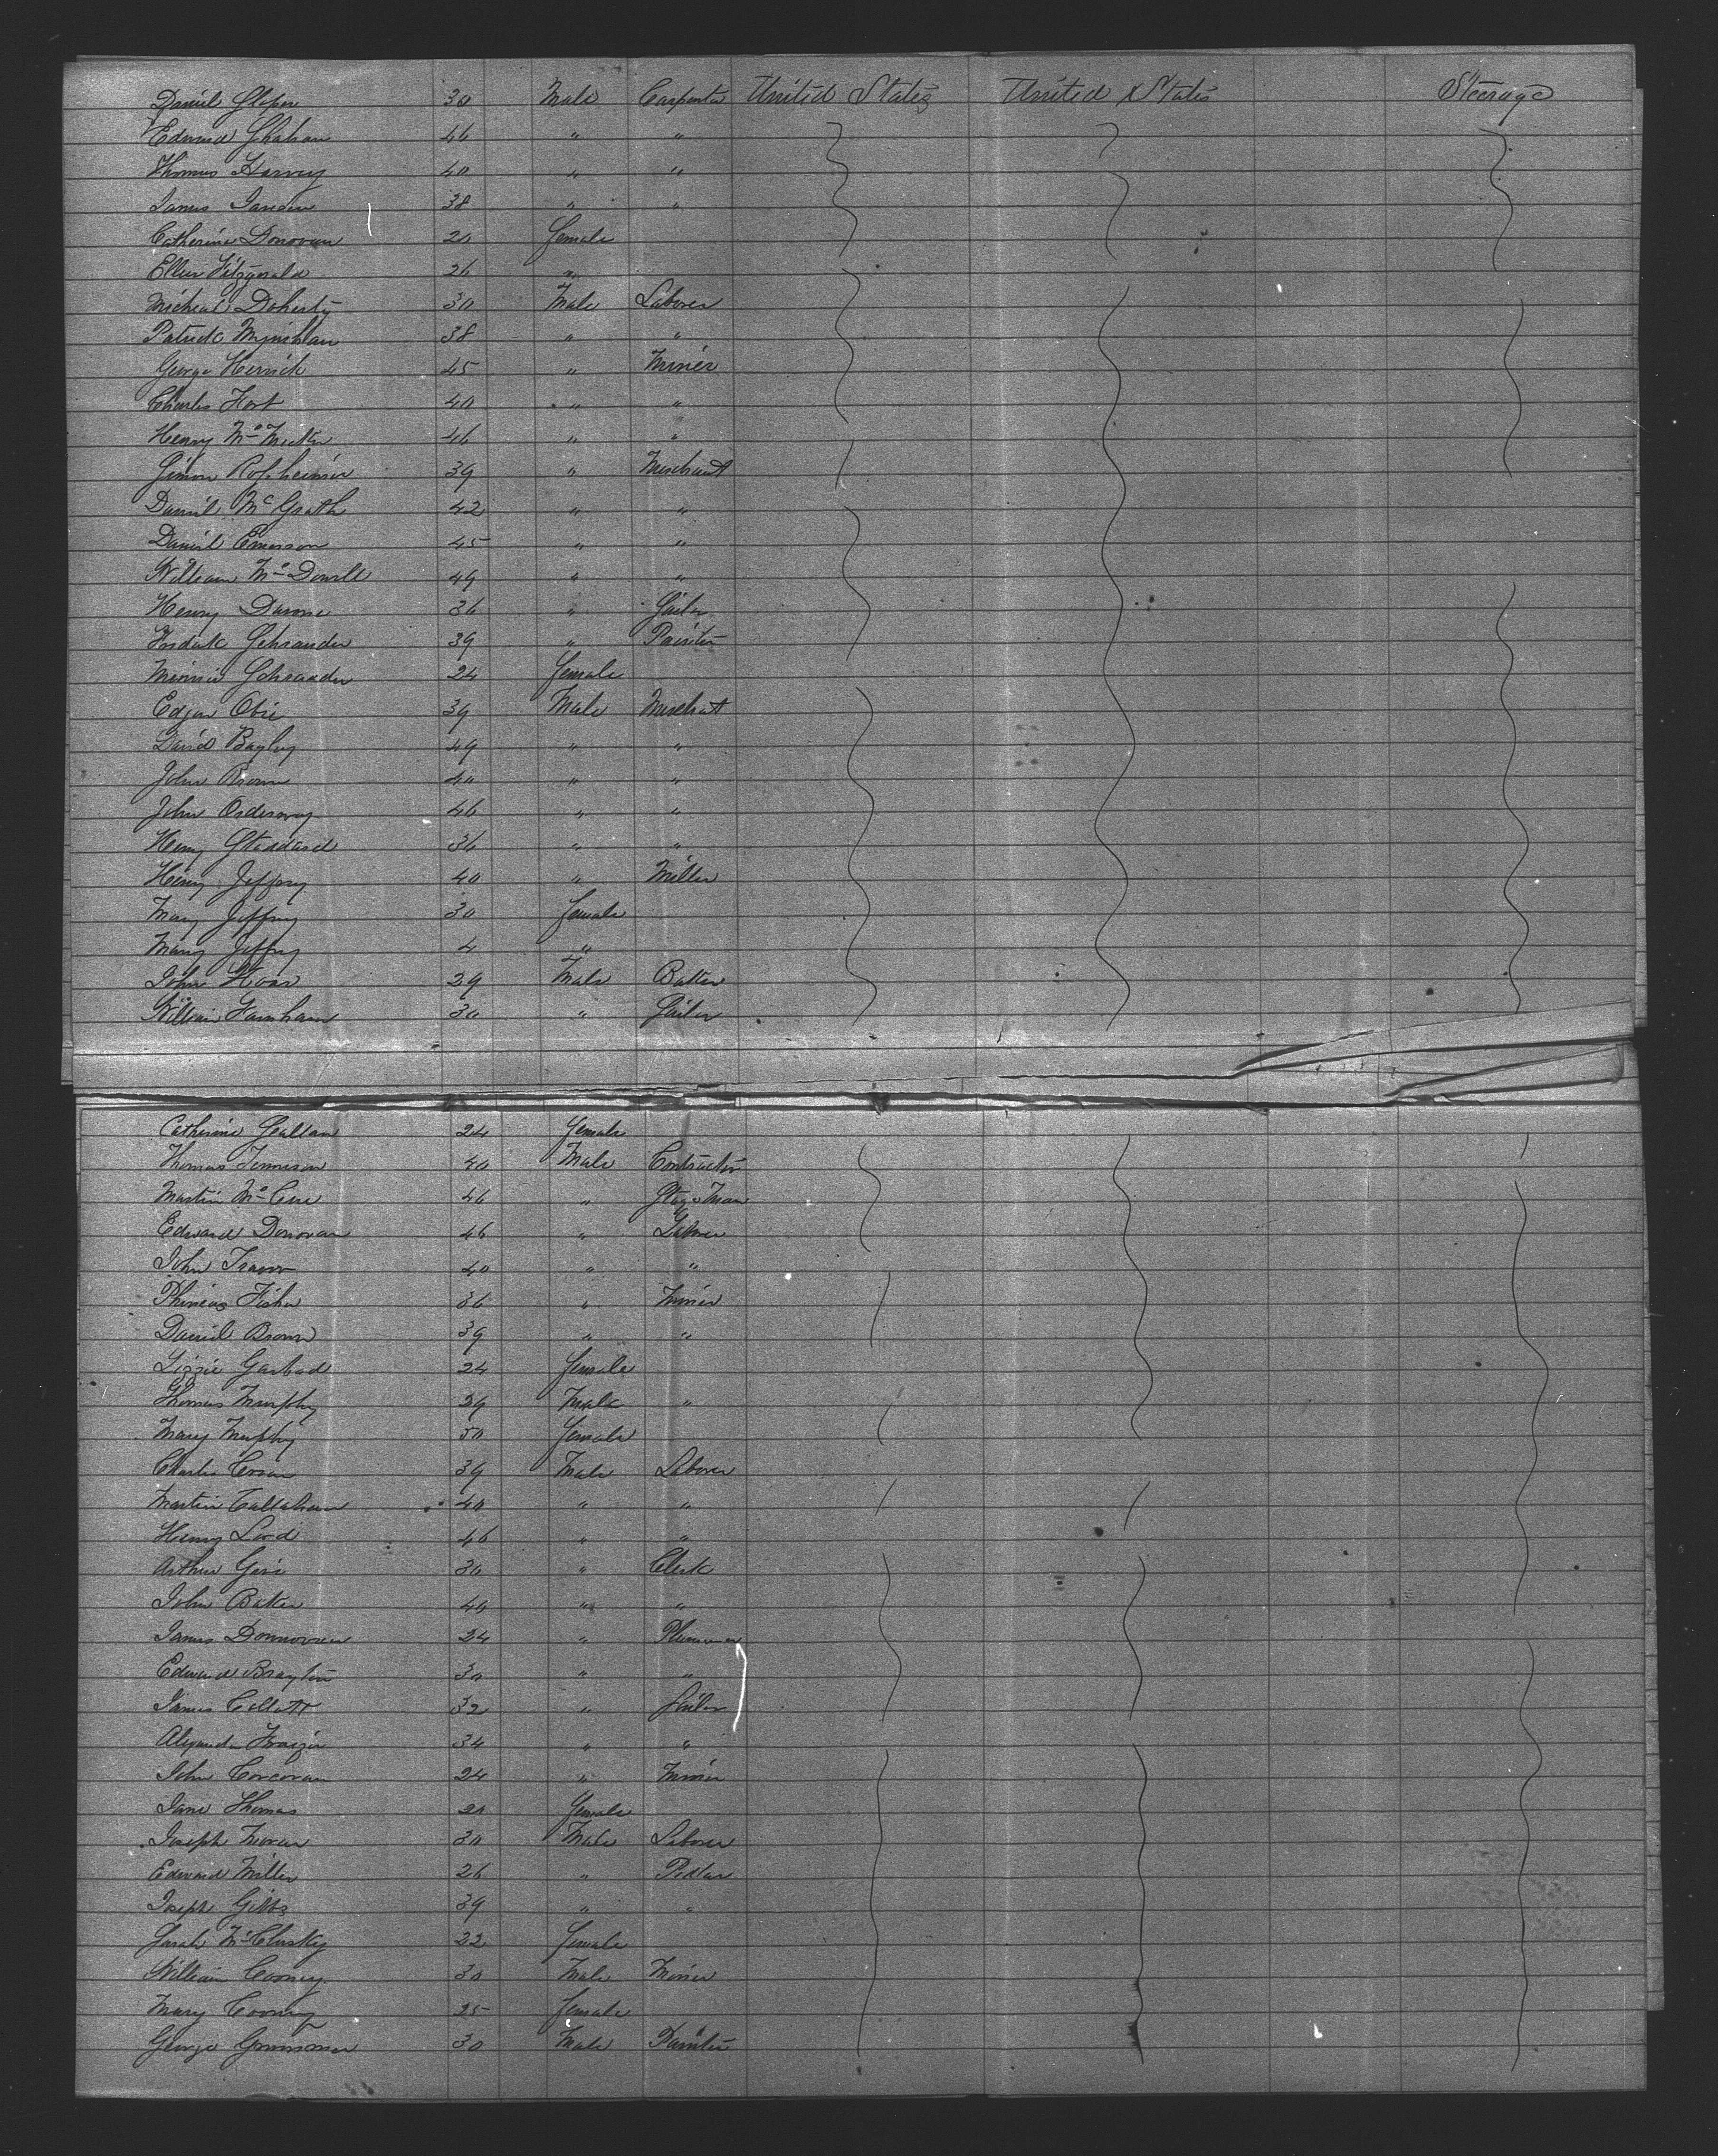 Daniel Sloper 30 Male Carpenter United States United States Steerage
Edward Graham 46 " "
Thomas Harvey 40 " "
James Jansen 38 " "
Catherine Donovan 20 Female
Ellen Fitzgerald 26 "
Micheal Doherty 30 Male Laborer
Patrick 38 " "
George Herrick 45 " Miner
Charles Hort 40 " "
Henry 46 " "
Simon 39 " Merchant
Daniel McGrath 42 " "
Daniel Emerson 45 " "
William McDowell 49 " "
Henry 36 " Sailor
Schrauder 39 " Painter
Minnie Schrauder 24 Female
Edgar Obie 39 Male Merchant
David Bagley 49 " "
John Brown 40 " "
John Orderway 46 " "
Henry Stoddard 36 " "
Henry Jeffrey 40 " Miller
Mary Jeffry 30 Female
Mary Jeffry 4 "
John Hoar 29 Male Baker
William Farnham 30 " Sailor
Catherine Geallan 24 Female
Thomas Tennison 40 Male Contractor
Martin 46 " Stage Man
Edward Donovan 46 " Laborer
John 40 " "
Phineas Fisher 36 " Miner
Daniel Brown 39 " "
Lizzie 24 Female
Thomas Murphy 29 Male "
Mary Murphy 50 Female
Charles 39 Male Laborer
Martin Callahan 40 " "
Henry Lord 46 " "
Arthur 30 " Clerk
John Baker 40 " "
James Donnovan 24 " Plummer
Edward Brayton 30 " "
James Collett 32 " Sailor
Alexander Frazier 34 " "
John Corcoran 24 " Miner
Jane Thomas 20 Female
Joseph Moran 30 Male Laborer
Edward Miller 26 " Pedlar
Joseph Gibbs 39 " "
Sarah McClusky 22 Female
William Cooney 30 Male Miner
Mary Cooney 25 Female
George 30 Male Painter